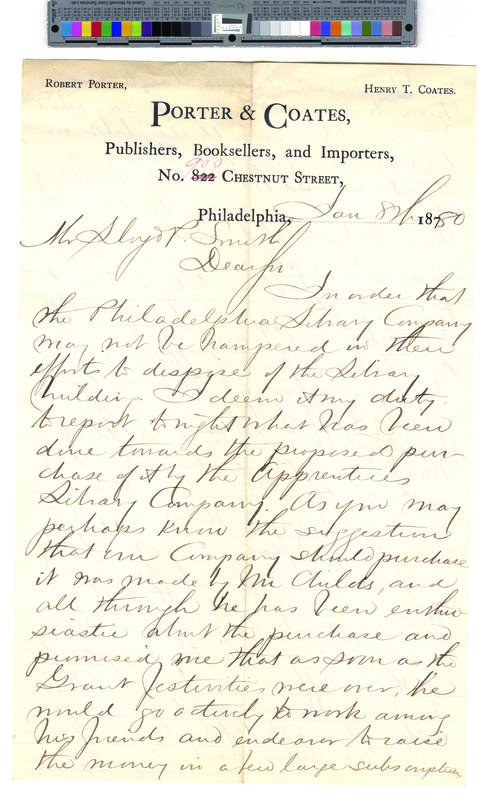 ROBERT PORTER,
HENRY T. COATES.
PORTER & COATES,
Publishers, Booksellers, and Importers,
900
No. 822 CHESTNUT STREET,
Philadelphia, Jan 8th 1880
Mr Lloyd P. Smith
Dear Sir.
In order that
the Philadelphia Library Company
may not be hampered in their
efforts to dispose of the Library
building I deem it my duty
to report tonight what has been
done towards the proposed pur-
chase of it by the Apprentices
Library Company. As you may
perhaps know the suggestion
that our Company should purchase
it was made by Mr Childs, and
all through he has been enthu
siastic about the purchase and
promised me that as soon as the
Grant festivities were over, he
would go actively to work among
his friends and endeavor to raise
the money in a few large subscriptions